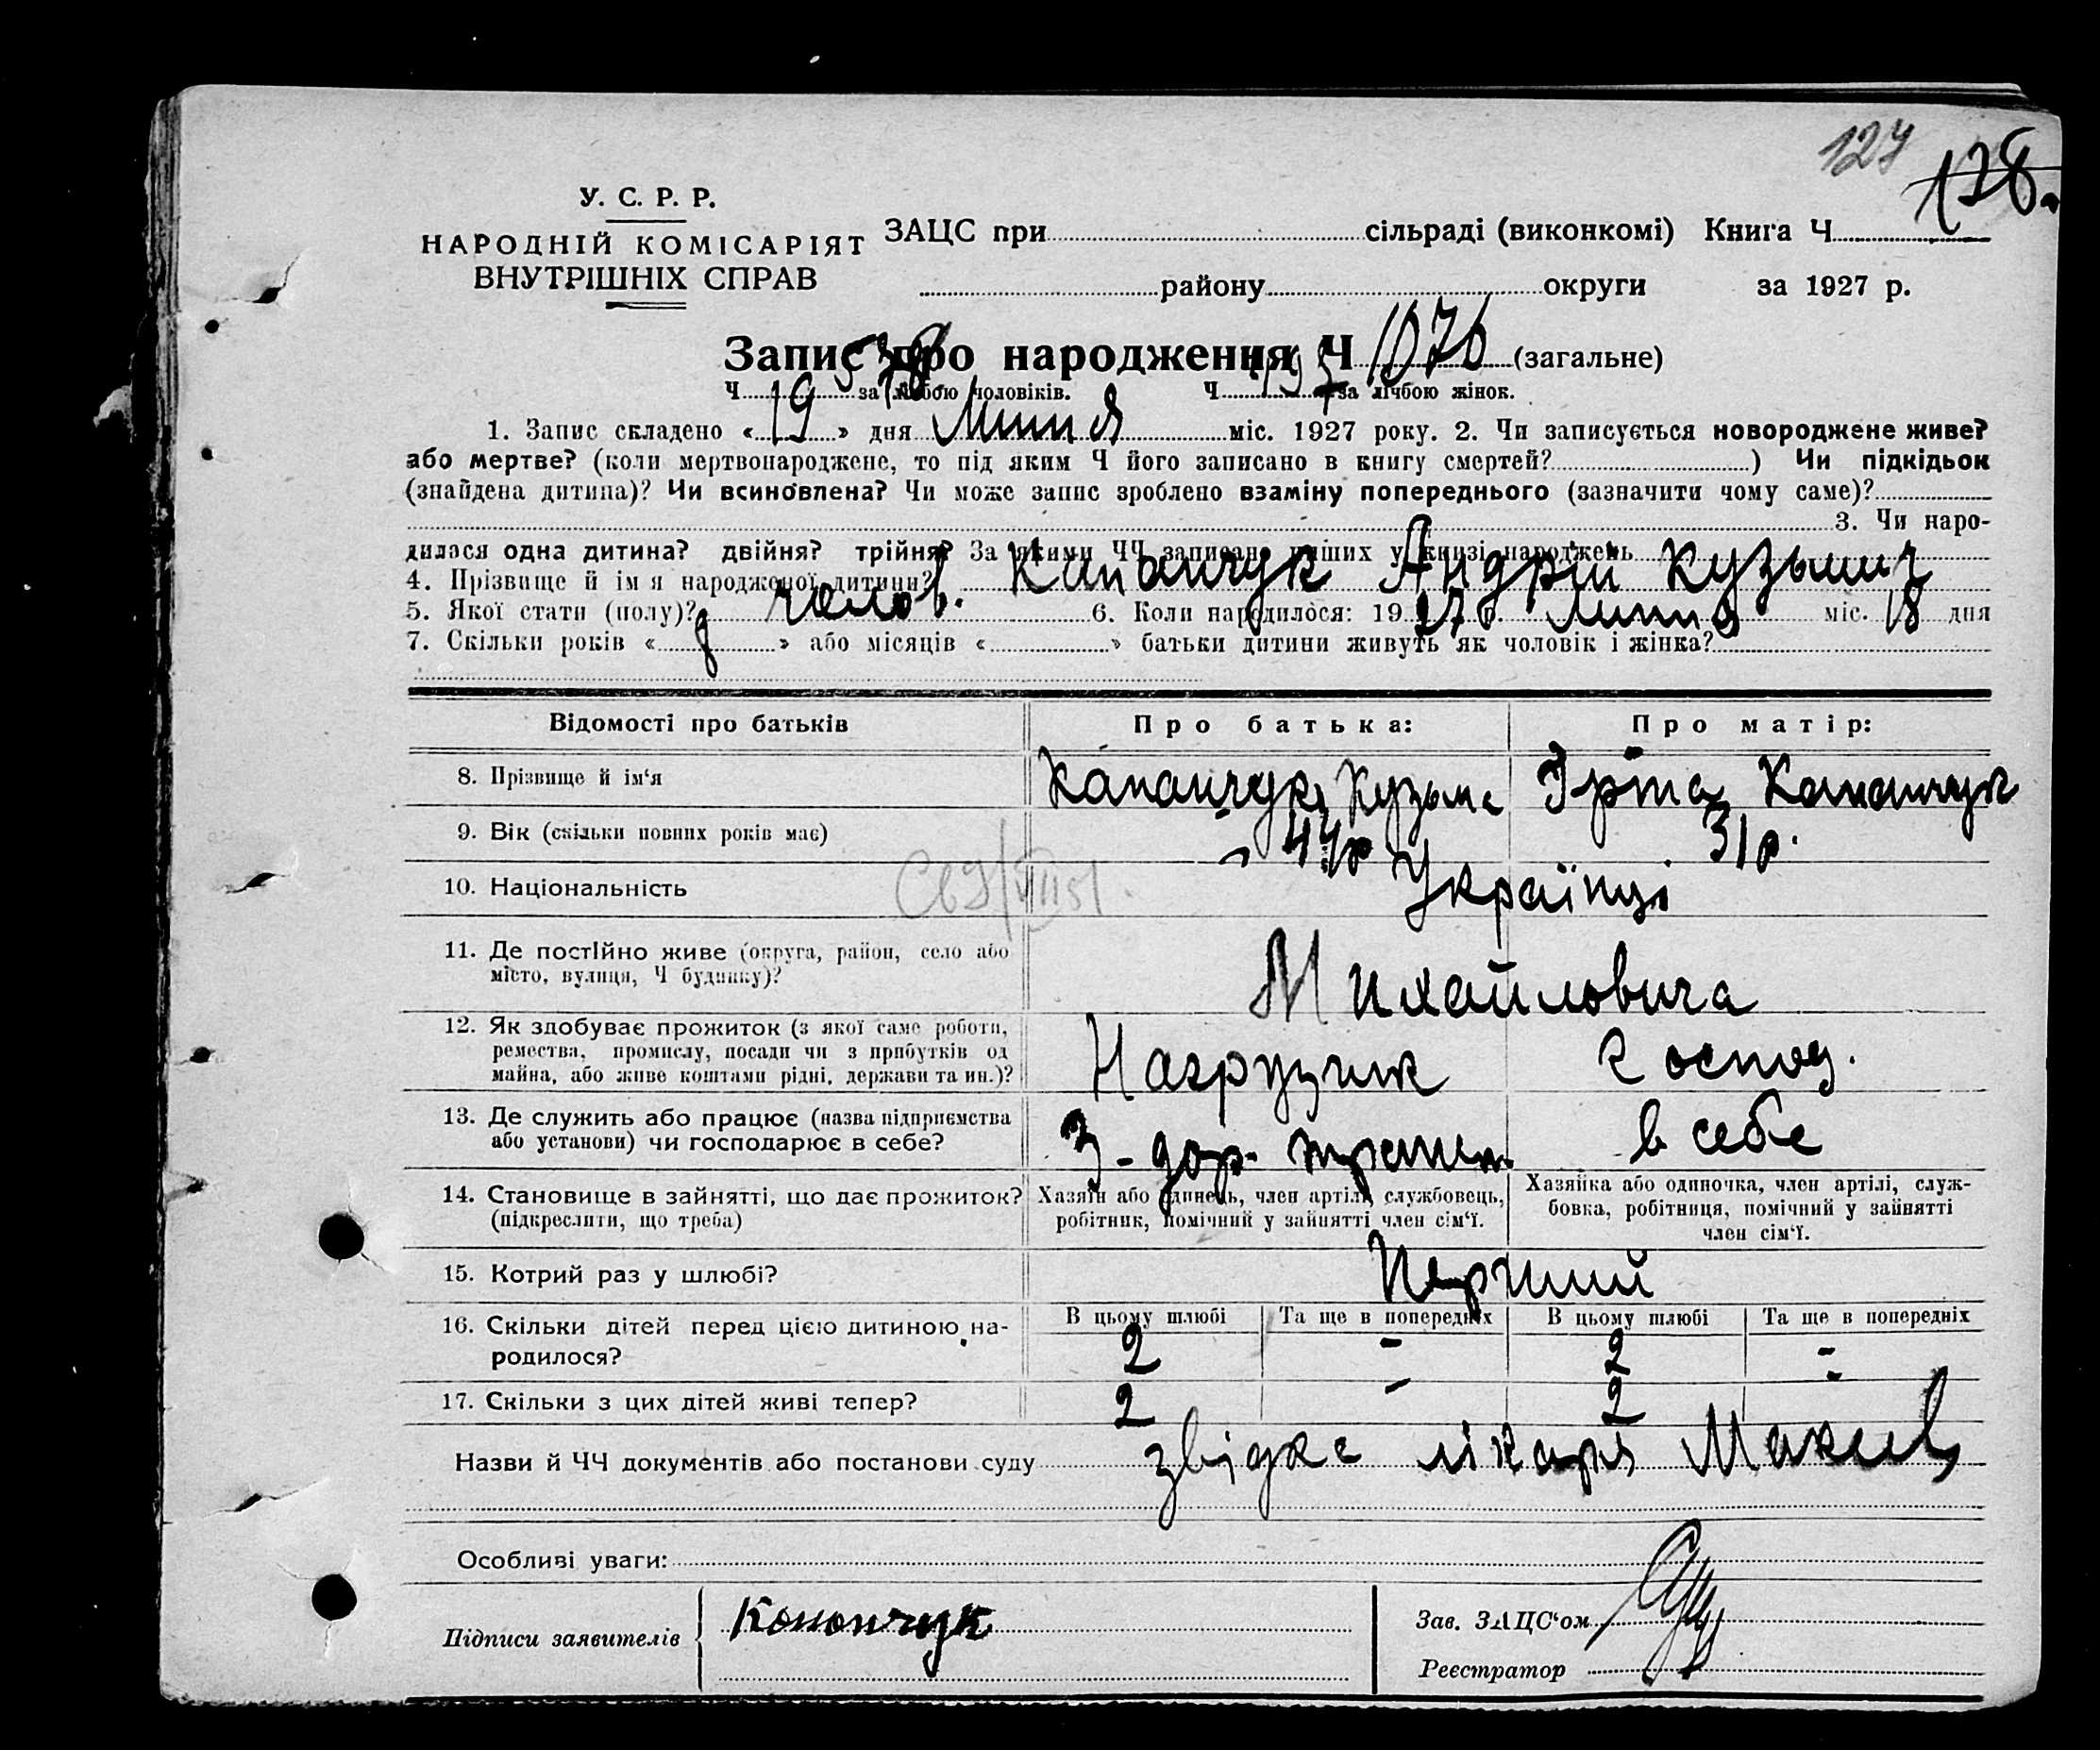 127
128.
У. С. Р. Р.
НАРОДНІЙ КОМІСАРІЯТ
ВНУТРІШНІХ СПРАВ
ЗАЦС при сільраді (виконкомі) Книга Ч
району округи за 1927 р.
Запис про народження Ч 1076 (загальне)
Ч за лічбою чоловіків. Ч за лічбою жінок.
1. Запис складено « 19 » дня Липня міс. 1927 року. 2. Чи записується новороджене живе?
або мертве? (коли мертвонароджене, то під яким Ч його записано в книгу смертей? ) Чи підкідьок
(знайдена дитина)? Чи всиновлена? Чи може запис зроблено взаміну попереднього (зазначити чому саме)?
3. Чи наро-
дилася одна дитина? двійня? трійня? За якими ЧЧ записано инших у книзі народжень
4. Прізвище й ім я народженої дитини? Капанчук Андрій Кузьмич
5. Якої стати (полу)? челов. 6. Коли народилося: 1927 р. Липня міс. 18 дня
7. Скільки років « » або місяців « » батьки дитини живуть як чоловік і жінка?
Відомості про батьків Про батька: Про матір:
8. Прізвище й ім'я Капанчук Кузьма Капанчук
9. Вік (скільки повних років має) 44р 31р.
10. Національність Українці
11. Де постійно живе (округа, район, село або
місто, вулиця, Ч будинку)? Михайловича
12. Як здобуває прожиток (з якої саме роботи,
ремества, промислу, посади чи з прибутків од
майна, або живе коштами рідні, держави та ин.)? Нагрузчик господ.
13. Де служить або працює (назва підприємства
або установи) чи господарює в себе? З-дор. в себе
14. Становище в зайнятті, що дає прожиток?
(підкреслити, що треба)
Хазяїн або одинець, член артілі, службовець,
робітник, помічний у зайнятті член сім'ї.
Хазяйка або одиночка, член артілі, служ-
бовка, робітниця, помічний у зайнятті
член сім'ї.
15. Котрий раз у шлюбі? Перший
В цьому шлюбі Та ще в попередніх В цьому шлюбі Та ще в попередніх
16. Скільки дітей перед цією дитиною на-
родилося? 2 - 2 -
17. Скільки з цих дітей живі тепер? 2 - 2
Назви й ЧЧ документів або постанови суду звідка лікаря
Особливі уваги:
Підписи заявителів Конончук
Зав. ЗАЦС'ом
Реєстратор